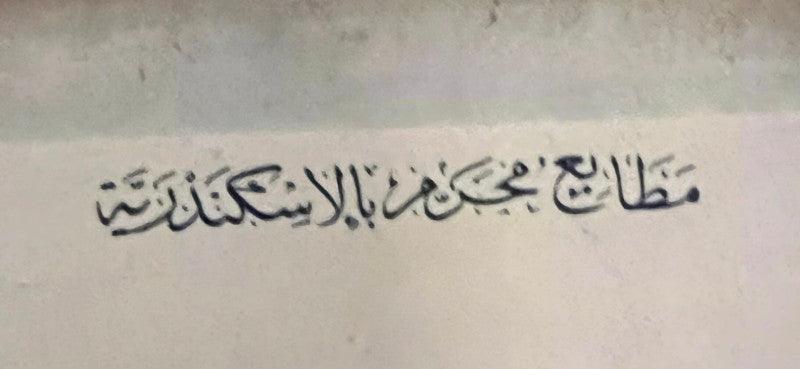 مطابع محرم بالاسكندرية